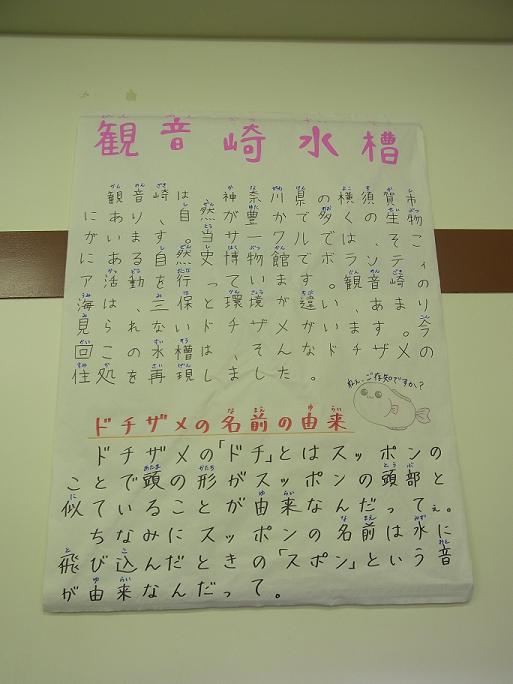 観音崎水槽
観音崎は神奈川県の横須賀市
にあります。
ア活動を行っています。観音崎の
海は、三保と環境が違い、あり
見れないドチザメがいます。今
回この水槽は、そんなドチザメの
住処を再現しました。
ねぇ、ご存知ですか？
ドチザメの名前の由来
ドチザメの「ドチ」とはスッポンの
ことで頭の形がスッポンの頭部と
似ていることが由来なんだってぇ。
ちなみにスッポンの名前は水に
飛び込んだときの「スポン」という音
が由来なんだって。